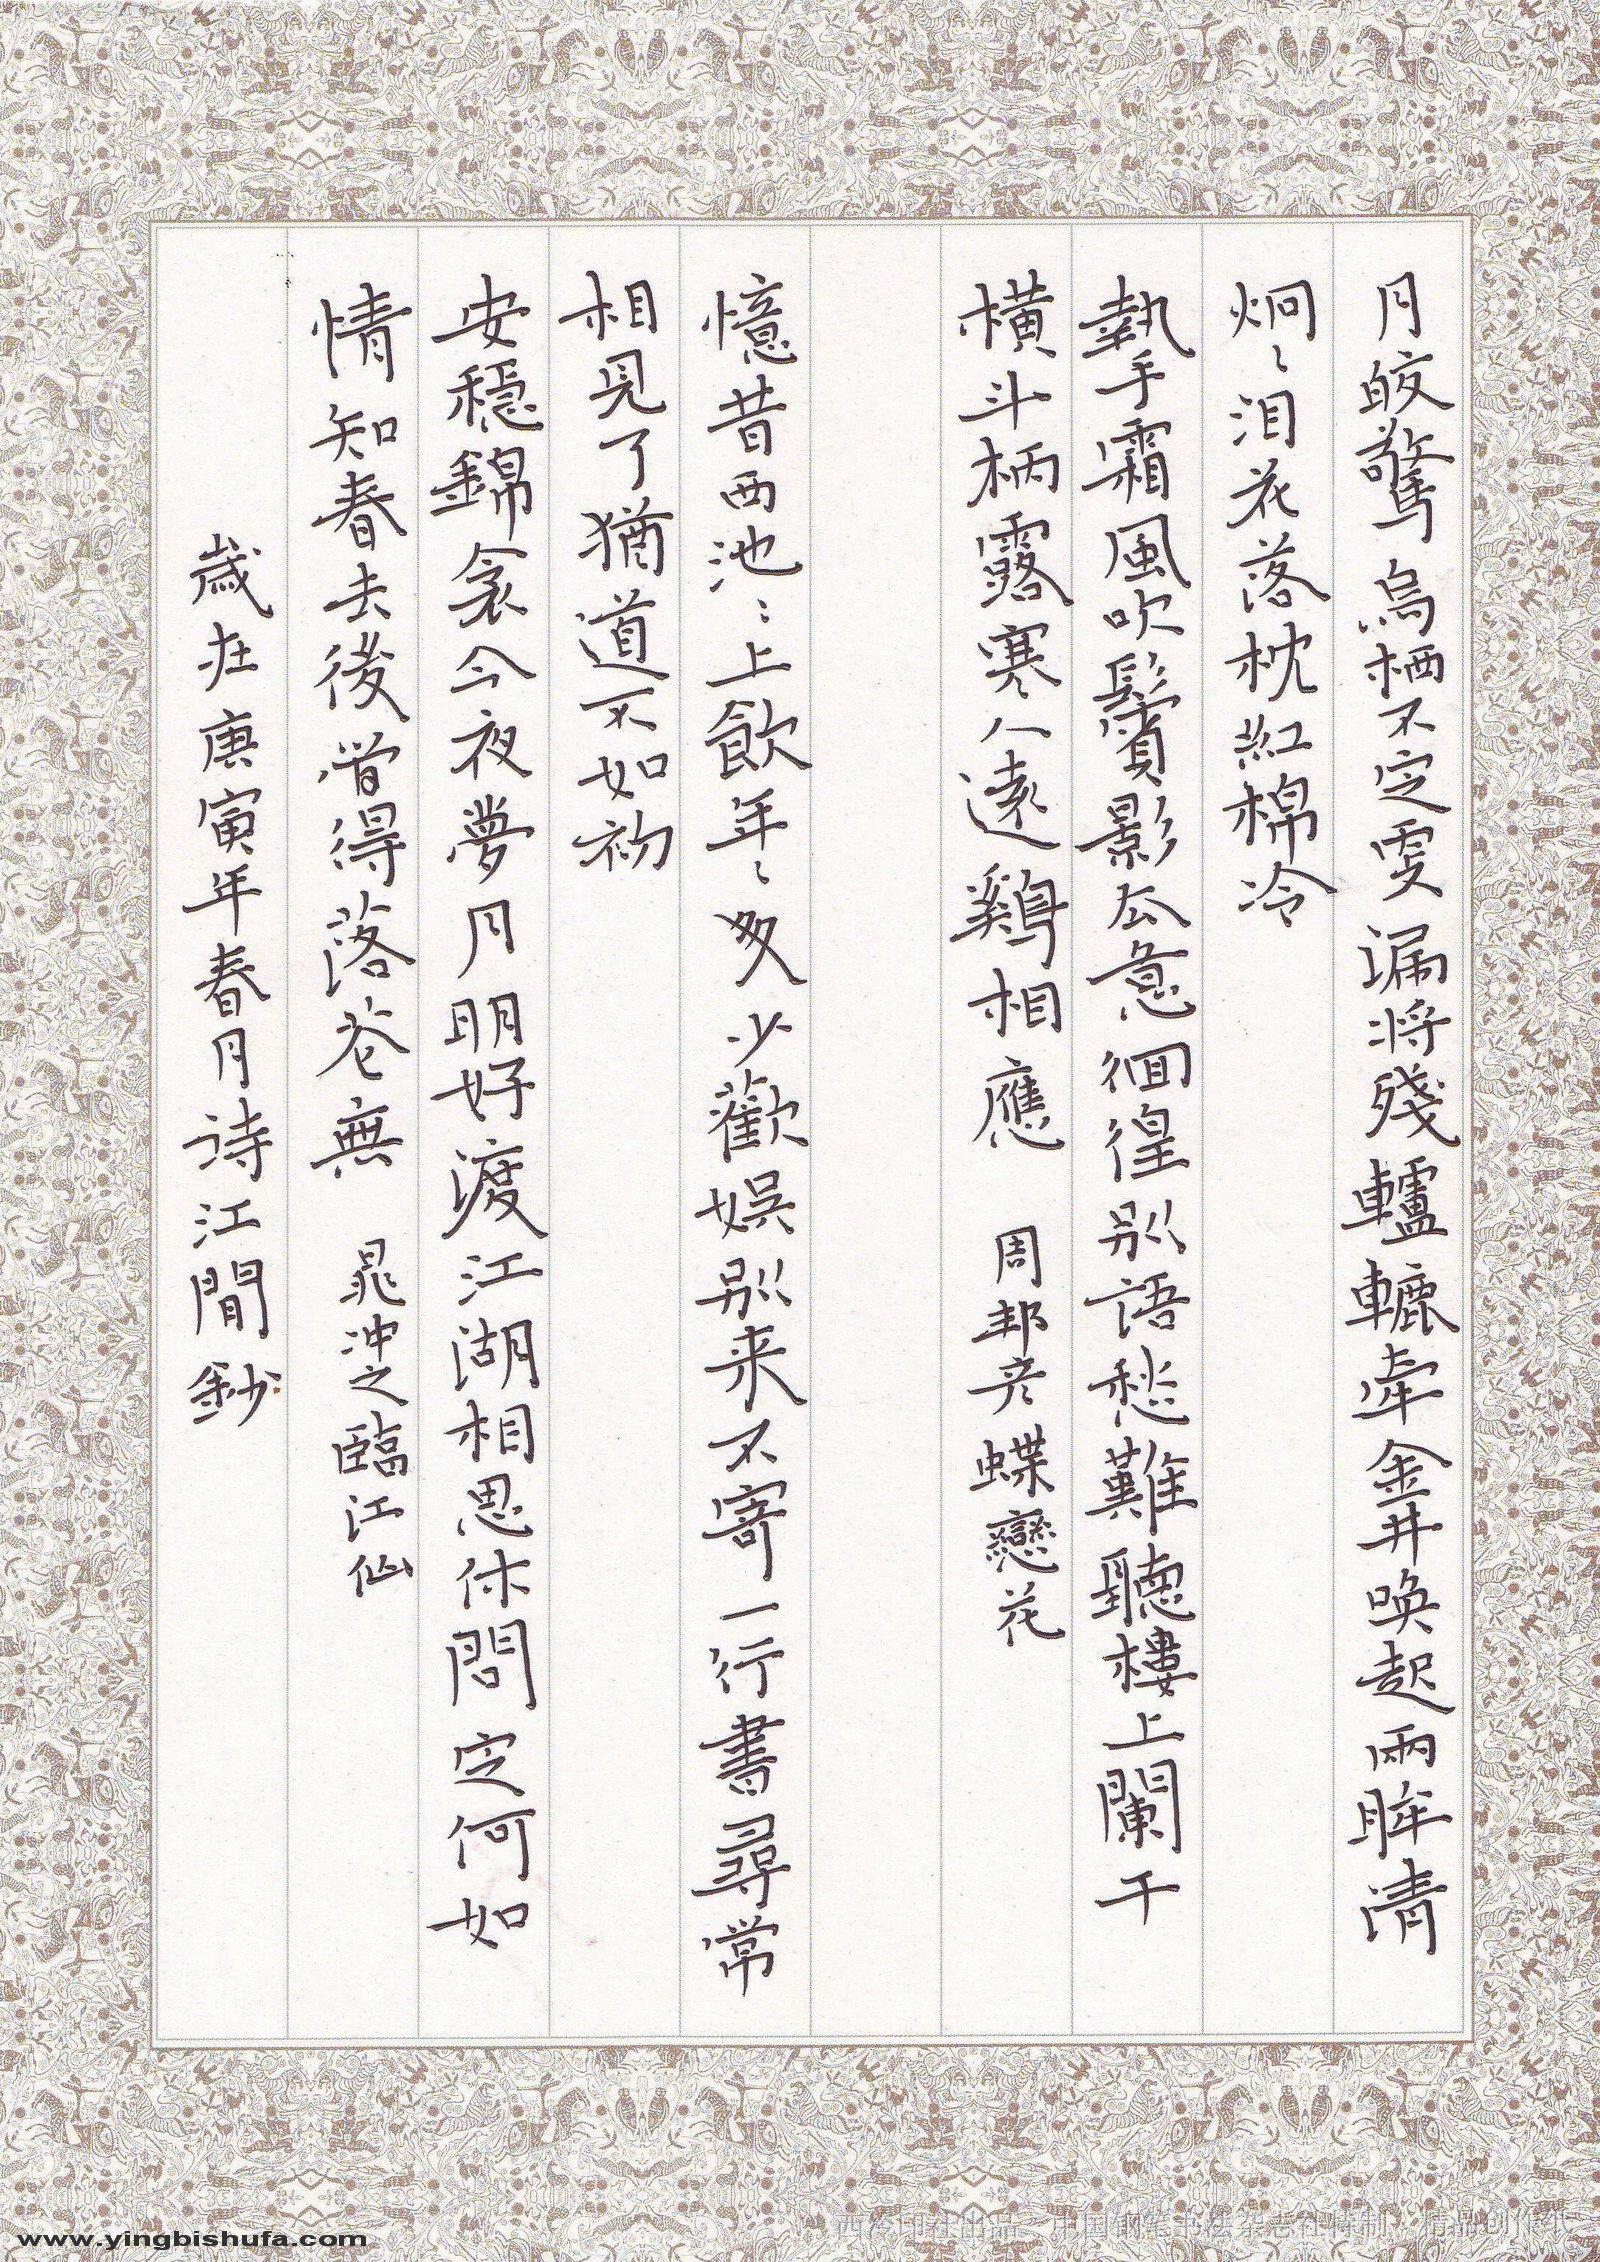 月皎驚烏栖不定雯漏將殘轤轆牽金井喚起兩眸清
炯〻泪花落枕紅棉冷
執手霜風吹鬢影去意徊徨别語愁難聽樓上闌干
橫斗柄露寒人遠鷄相應 周邦彦蝶戀花
憶昔西池〻上飲年〻多少歡娱别来不寄一行書尋常
相見了猶道不如初
安穩錦衾今夜夢月明好渡江湖相思休問定何如
情知春去後管得落花無 晁冲之臨江仙
歲在庚寅年春月詩江間鈔
www.yingbishufa.com
西泠印社出品 中国钢笔书法杂志社特制 精品创作纸